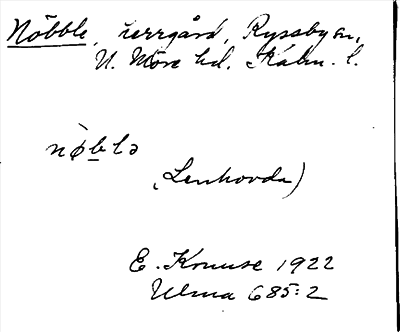 Nöbble, herrgård, Ryssby sn,
N. Möre hd. Kalm. l.
nø̀blə
(Lenhovda)
E. Kruuse 1922
Ulma 685:2